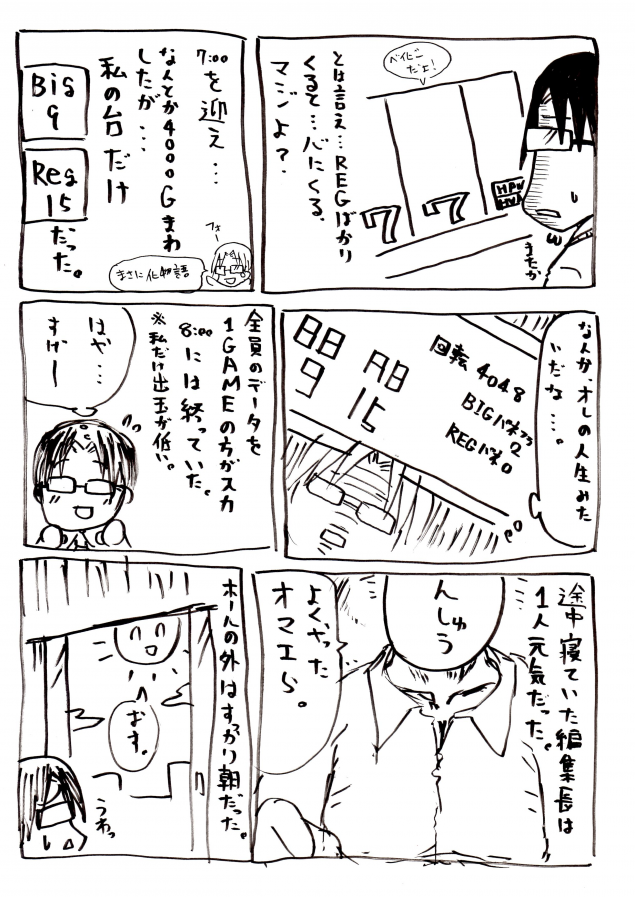 とは言え…REGばかり
くると…バにくる。
マジよ？
ベイビー
だよ！
7
7
またか
7:00を迎え…
なんとか4000Gまわ
したが…
私の台だけ
Big
9
Reg
15
だった。
フォー
まさに化物語
なんか、オレの人生みた
いだな…。
回転 4048
BIGパネフラ
2
REGパネ0
BB
9
RB
15
全員のデータを
1GAMEの方がスカ
8:00には終っていた。
※私だけ出玉が低い。
はや…
すげー
途中寝ていた編集長は
1人元気だった。
んしゅう
よくやった
オマエら。
ホールの外はすっかり朝だった。
おす。
うわっ